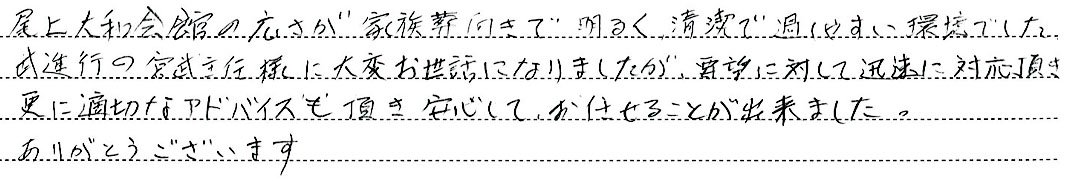 尾上大和会館の広さが家族葬向きで明るく清潔で過しやすい環境でした
式進行の宮武主任様に大変お世話になりましたが、要望に対して迅速に対応頂き
更に適切なアドバイスも頂き安心して、お任せることが出来ました。
ありがとうございます